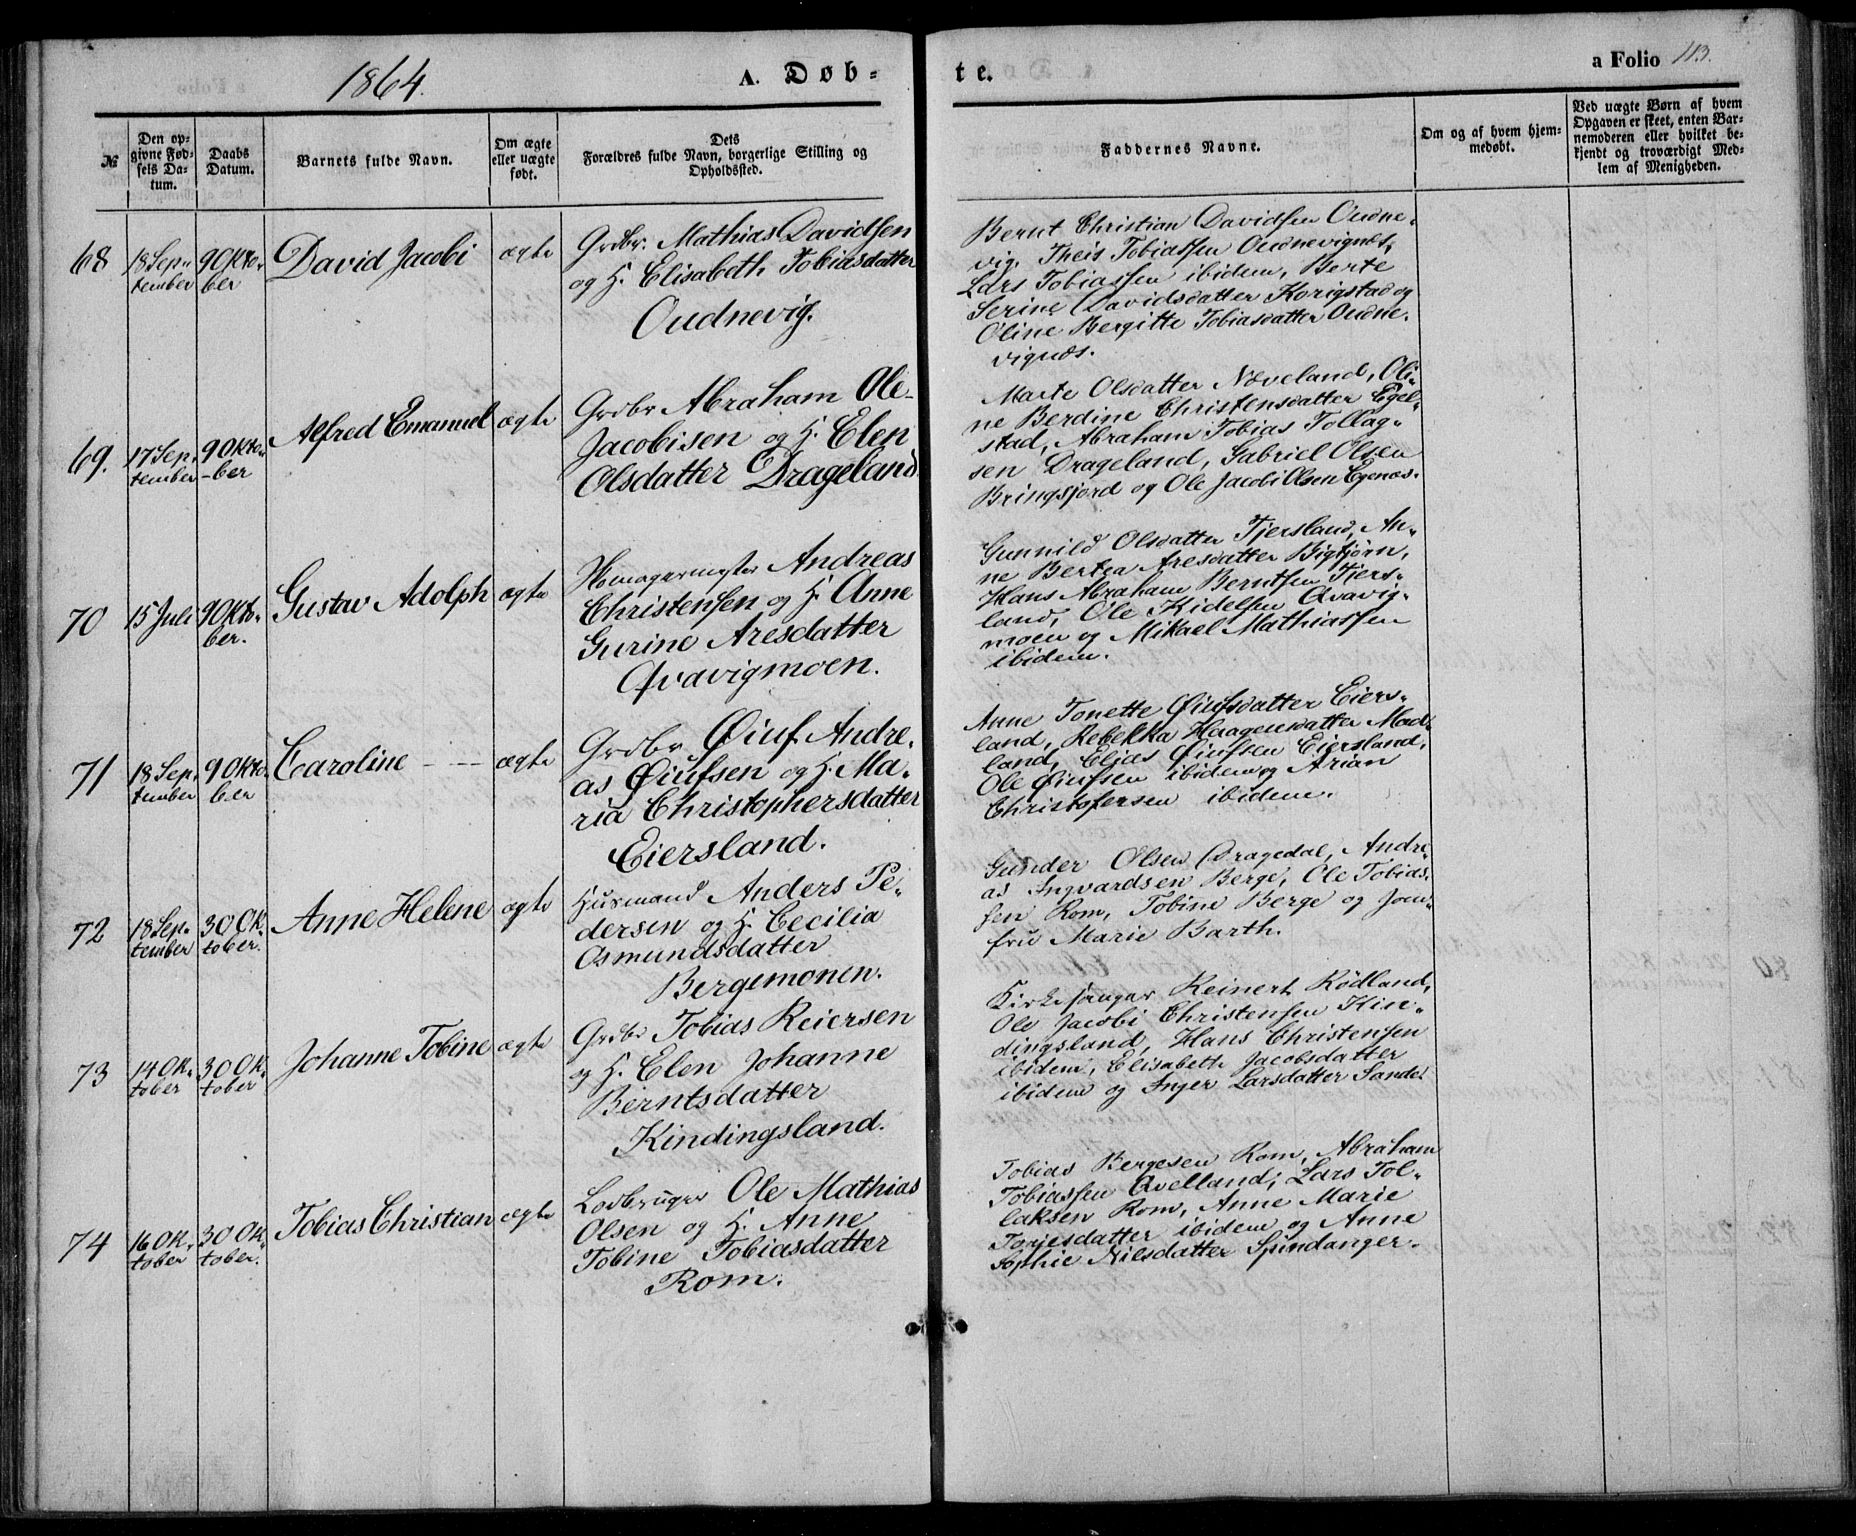 1864. A. Døb-
te.
a Folio 113.
№
Den op-
givne Fød-
sels Da-
tum.
Daabs
Datum.
Barnets fulde Navn.
Om ægte
eller uægte
født.
Dets
Forældres fulde Navn, borgerlige Stilling og
Opholdssted.
Faddernes Navne.
Om og af hvem hjem-
medøbt.
Ved uægte Børn af hvem
Opgaven er skeet, enten Bar-
nemoderen eller hvilket be-
kjendt og troværdigt Med-
lem af Menigheden.
68
18 Sep-
tember
9 Okto-
ber
David Jacobi
ægte
Grdbr. Mathias Davidsen
og H. Elisabeth Tobiasdatter
Oudnevig.
Bernt Christian Davidsen Oudne-
vig, Theis Tobiassen Oudnevignæs,
Lars Tobiassen ibidem, Berte
Serine Davidsdatter Korigstad og
Oline Bergitte Tobiasdatter Oudne-
vignæs.
69.
17 Sep-
tember
9 Okto-
-ber
Alfred Emanuel
ægte
Grdbr Abraham Ole-
Jacobisen og H. Elen
Olsdatter Drageland
Marte Olsdatter Næveland, Oli-
ne Berdine Christensdatter Egel-
stad, Abraham Tobias Tollag-
sen Drageland, Gabriel Olsen
Bringsjord og Ole Jacobi Olsen Egenæs.
70
15 Juli
9 Okto-
ber.
Gustav Adolph
ægte
Andreas
Christensen og H. Anne
Gurine Aresdatter
Qvavigmoen.
Gunnild Olsdatter Tjersland, An-
ne Bertea Aresdatter Bigtjørn,
Hans Abraham Berntsen Tjers-
land, Ole Kidelsen Qvavig-
moen og Mikael Mathiassen
ibidem.
71
18 Sep-
tember
9 Okto-
ber
Caroline - --
ægte
Grdbr Øiuf Andre-
as Øiufsen og H. Ma-
ria Christophersdatter
Eiersland.
Anne Tonette Øiufsdatter Eiers-
land, Rebekka Haagensdatter Mad-
land, Elias Øiufsen Eiersland,
Ole Øiufsen ibidem og Arian
Christofersen ibidem.
72
18 Sep-
tember
30 Ok-
tober.
Anne Helene
ægte
Husmand Anders Pe-
dersen og H. Cecilia
Osmundsdatter
Bergemonen.
Gunder Olsen Dragedal, Andre-
as Ingvardsen Berge, Ole Tobias-
sen Rom, Tobine Berge og Jom-
fru Marie Barth.
73
14 Ok-
tober
30 Ok-
tober
Johanne Tobine
ægte
Grdbr Tobias Reiersen
og H. Elen Johanne
Berntsdatter
Kindingsland.
Kirkesanger Reinert Rødland,
Ole Jacobi Christensen Kin-
dingsland, Hans Christensen
ibidem, Elisabeth Jacobsdatter
ibidem og Inger Larsdatter Sande.
74
16 Ok-
tober
30 Ok-
tober.
Tobias Christian
ægte
Lodbruger Ole Mathias
Olsen og H. Anne
Tobine Tobiasdatter
Rom.
Tobias Bergesen Rom, Abraham
Tobiassen Qvelland, Lars Tol-
laksen Rom, Anne Marie
Torjesdatter ibidem og Anne
Sophie Nilsdatter Spindanger.